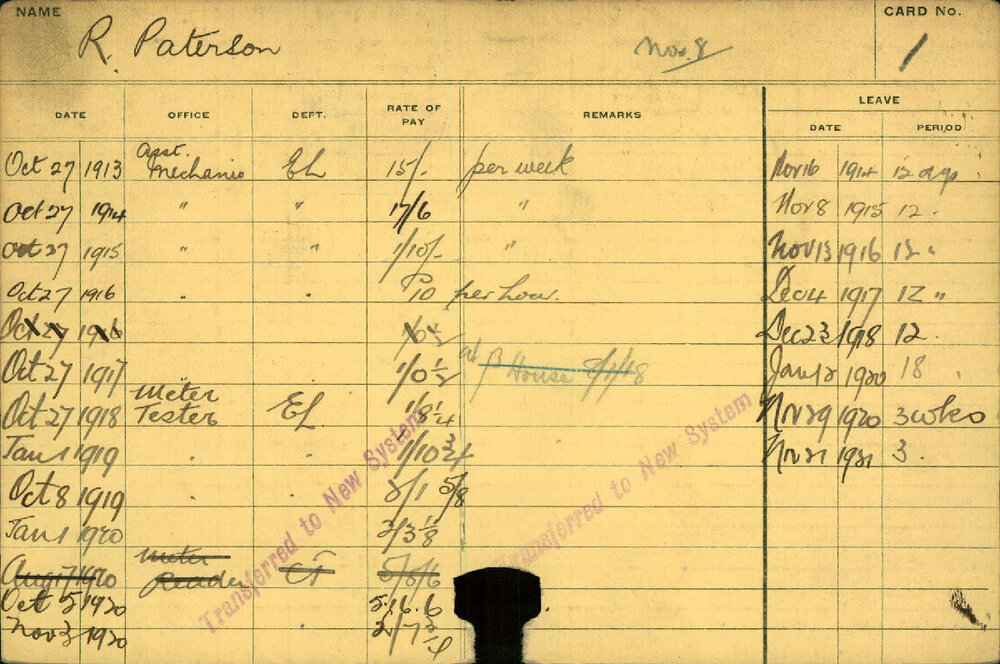 NAME
CARD No.
R. Paterson
Nov. 8
1
DATE OFFICE DEPT. RATE OF PAY REMARKS LEAVE
DATE PERIOD
Oct 27 1913 Asst. Mechanic EL 15/- per week Nov 16 1914 12 dys
Oct 27 1914 " " 17/6 " Nov 8 1915 12 .
Oct 27 1915 " " 1/10/- " Nov 13 1916 12 "
Oct 27 1916 . . 10 per hour. Dec 4 1917 12 "
Oct 27 1916 Dec 23 1918 12.
Oct 27 1917 1/0½ at House Jan 12 1920 18
Oct 27 1918 Meter Tester EL 1/8¼ Nov 29 1920 3 wks
Jan 1 1919 . . 1/10¾ Nov 21 1921 3 .
Oct 8 1919 . . 2/1 5/8
Jan 1 1920 2/3⅛
Aug 17 1920 Meter Reader 5/8/6
Oct 5 1920 5.16.6
Nov 3 1920 .
Transferred to New System
Transferred to New System